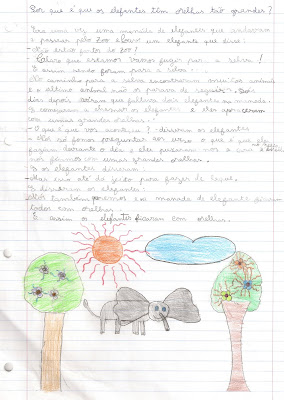 Por que é que os elefantes têm orelhas tão grandes?
Era uma vez uma manada de elefantes que andavam
a passear pelo Zoo e um elefante que disse:
- estou farto do Zoo!
- Claro que estamos vamos fugir para a selva!
E assim foram para a selva...
No caminho para a selva encontraram animais
e o último animal não os parava de seguir. Dois
dias depois viram que faltava dois elefantes na manada.
E começaram a chamar os elefantes e eles apareceram
com umas grandes orelhas.
- O que é que vos aconteceu? - disseram os elefantes
- Nós só fomos perguntar ao urso o que é que eles
faziam durante o dia e eles puxaram-nos e
nós ficámos com umas grandes orelhas.
E os elefantes disseram:
- Mas isso até dá jeito para fazer de leque.
E disseram os elefantes:
Nós também queremos e a manada de elefantes ficaram
todos com orelhas.
E assim os elefantes ficaram com orelhas.